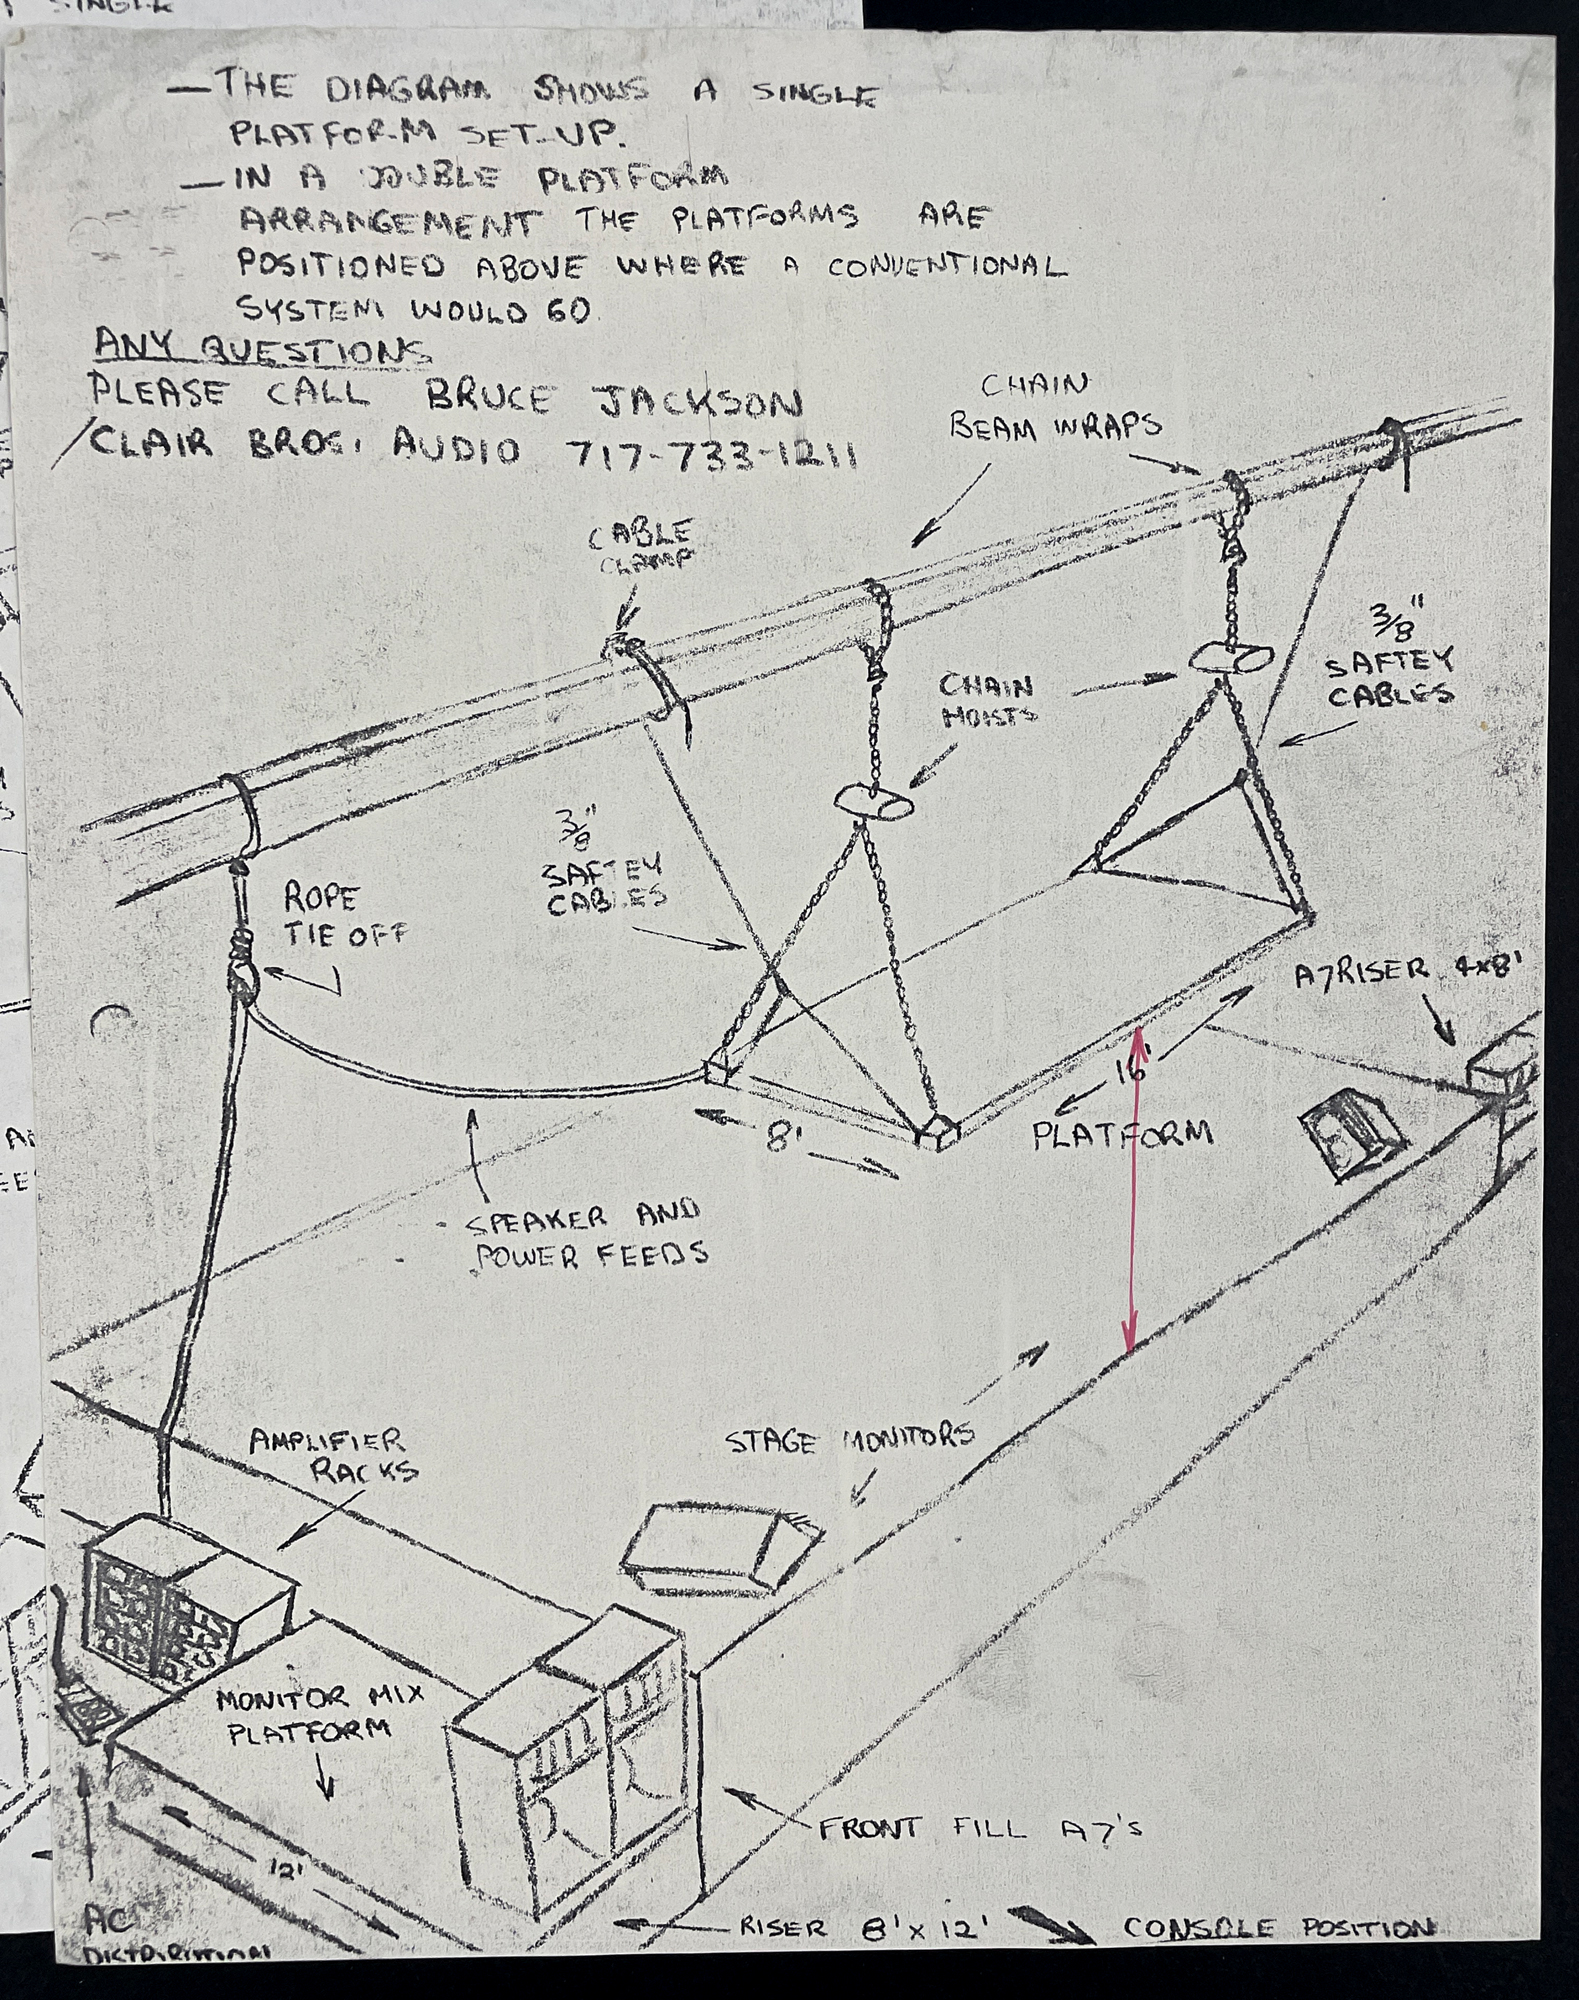 SINGLE
— THE DIAGRAM SHOWS A SINGLE
PLATFORM SET-UP.
— IN A DOUBLE PLATFORM
ARRANGEMENT THE PLATFORMS ARE
POSITIONED ABOVE WHERE A CONVENTIONAL
SYSTEM WOULD GO.
ANY QUESTIONS
PLEASE CALL BRUCE JACKSON
/CLAIR BROS. AUDIO 717-733-1211
CHAIN
BEAM WRAPS
CABLE
CLAMP
3/8"
SAFTEY
CABLES
CHAIN
HOISTS
3/8"
SAFTEY
CABLES
ROPE
TIE OFF
A7 RISER 4x8'
16'
PLATFORM
8'
SPEAKER AND
POWER FEEDS
AMPLIFIER
RACKS
STAGE MONITORS
MONITOR MIX
PLATFORM
FRONT FILL A7's
12'
AC
DISTRIBUTION
RISER 8' x 12'
CONSOLE POSITION